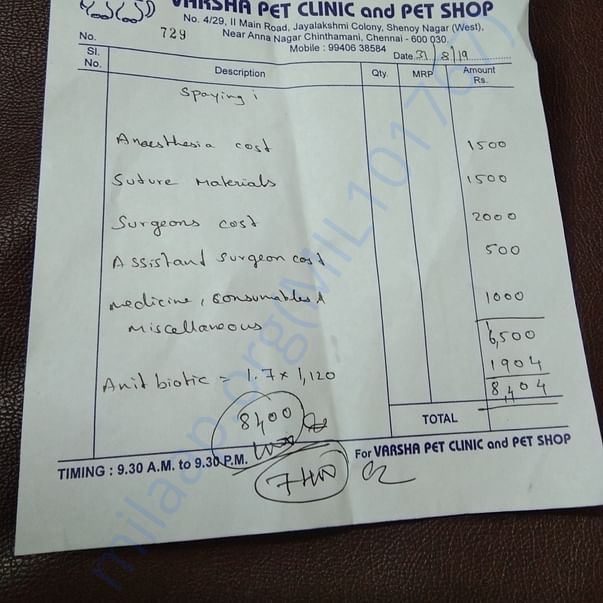 VARSHA PET CLINIC and PET SHOP
No. 4/29, II Main Road, Jayalakshmi Colony, Shenoy Nagar (West),
Near Anna Nagar Chinthamani, Chennai - 600 030.
Mobile : 99406 38584
No. 729 Date 31/8/19
Sl. No. Description Qty. MRP Amount Rs.
Spaying :
Anaesthesia cost 1500
Suture Materials 1500
Surgeons cost 2000
Assistand Surgeon cost 500
Medicine, Consumables & 1000
Miscellaneous
6,500
1904
Anit biotic = 1.7 x 1,120
8,404
8,400
TOTAL
1000
For VARSHA PET CLINIC and PET SHOP
TIMING : 9.30 A.M. to 9.30 P.M.
7400
milaap.org(MIL101767)